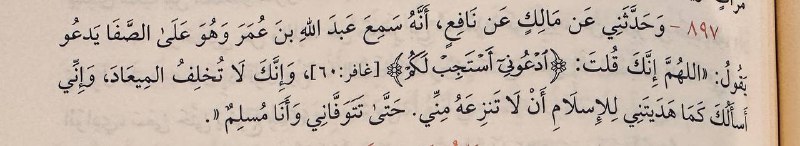 ٨٩٧ - وَحَدَّثَنِي عَن مَالِكٍ عَن نَافِعٍ، أَنَّهُ سَمِعَ عَبدَ اللهِ بنَ عُمَرَ وَهُوَ عَلَىٰ الصَّفَا يَدعُو
يَقُولُ: "اللهُمَّ إِنَّكَ قُلتَ: ﴿ٱدْعُونِيٓ أَسْتَجِبْ لَكُمْ﴾ [غافر:٦٠]، وَإِنَّكَ لَا تُخلِفُ المِيعَادَ، وَإِنِّي
أَسأَلُكَ كَمَا هَدَيتَنِي لِلإِسلَامِ أَنْ لَا تَنزِعَهُ مِنِّي. حَتَّىٰ تَتَوَفَّانِي وَأَنَا مُسلِمٌ".